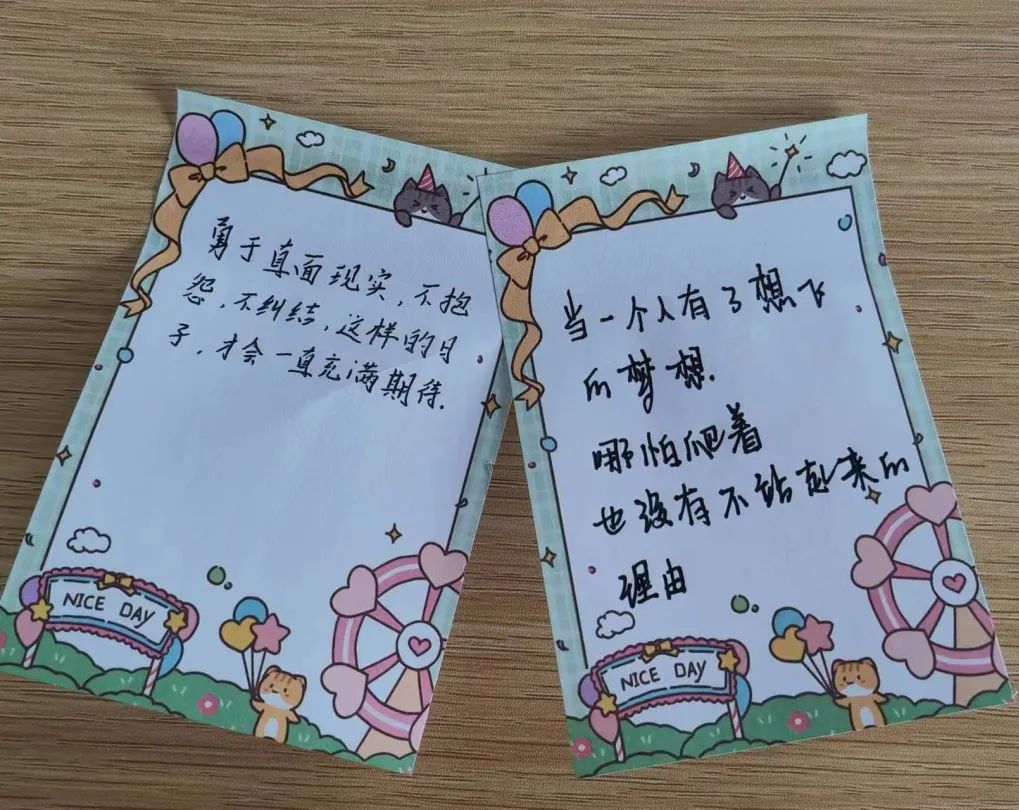 勇于直面现实，不抱
怨，不纠结，这样的日
子，才会一直充满期待.
NICE DAY
当一个人有了想飞
的梦想.
哪怕爬着
也没有不站起来的
理由
NICE DAY